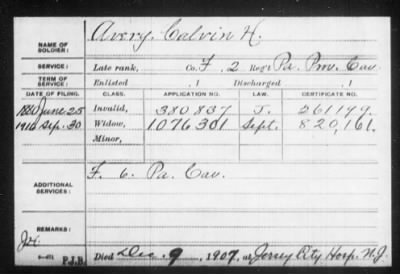 NAME OF SOLDIER: Avery, Calvin H.
SERVICE: Late rank, Co. F, 2 Reg't Pa. Prov. Cav.
TERM OF SERVICE: Enlisted , 1 Discharged , 1
DATE OF FILING. CLASS. APPLICATION NO. LAW. CERTIFICATE NO.
1880 June 25 Invalid, 380837 J. 261199.
1910 Sep. 30 Widow, 1076301 Sept. 820,161.
Minor,
ADDITIONAL SERVICES: F. 6. Pa. Cav.
REMARKS:
P.J.B. Died Dec. 9, 1907, at Jersey City Hosp. N.J.